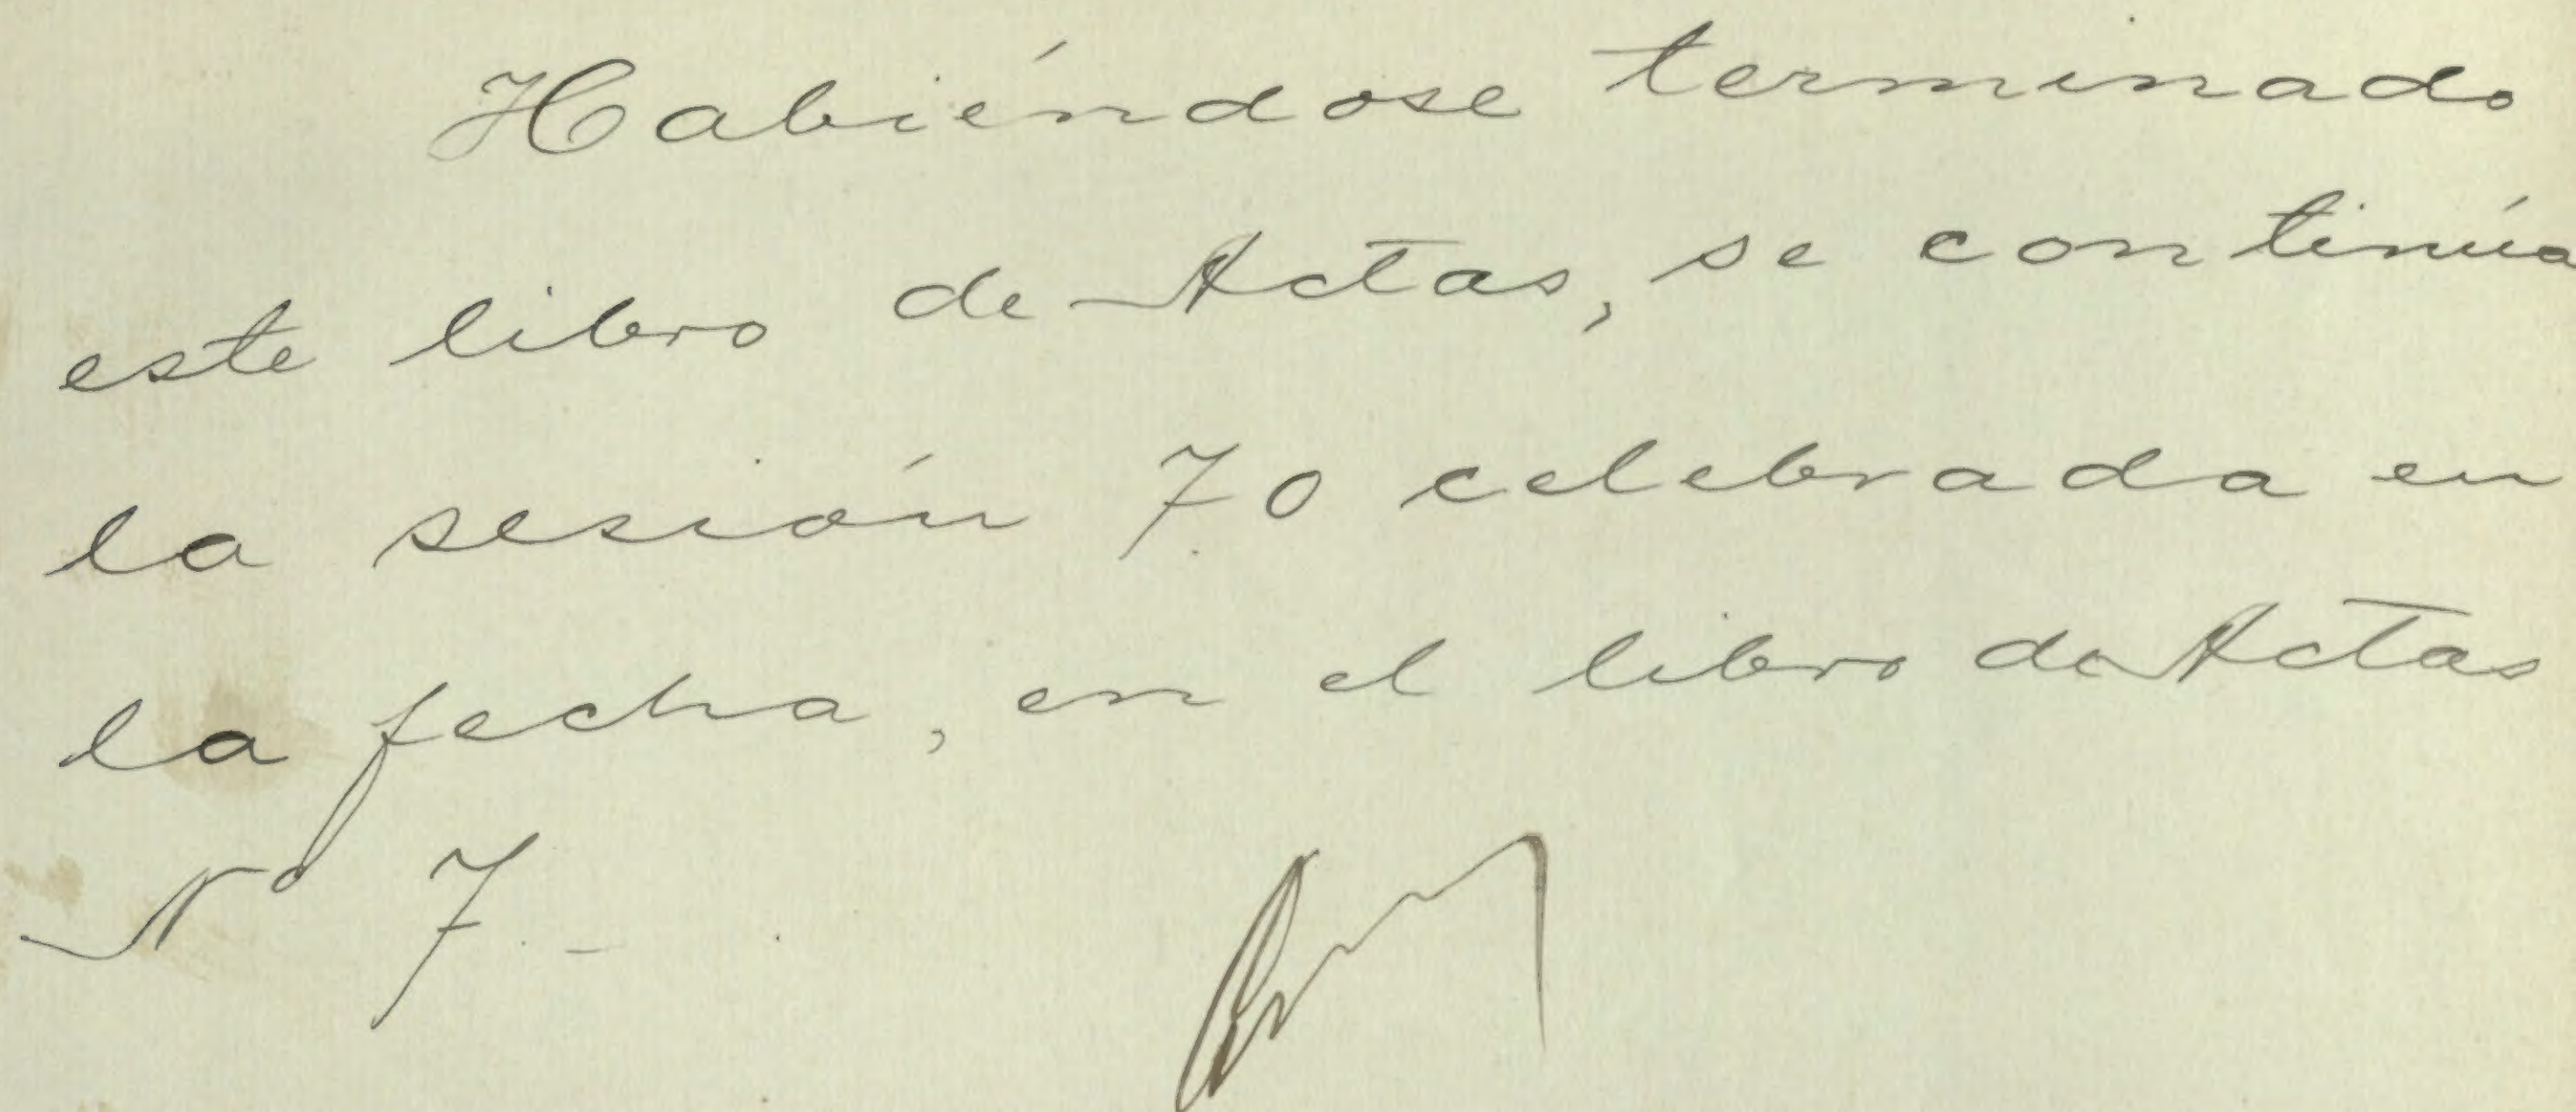 Habiéndose terminado
este libro de Actas, se continúa
la sesión 70 celebrada en
la fecha, en el libro de Actas
Nº 7.-